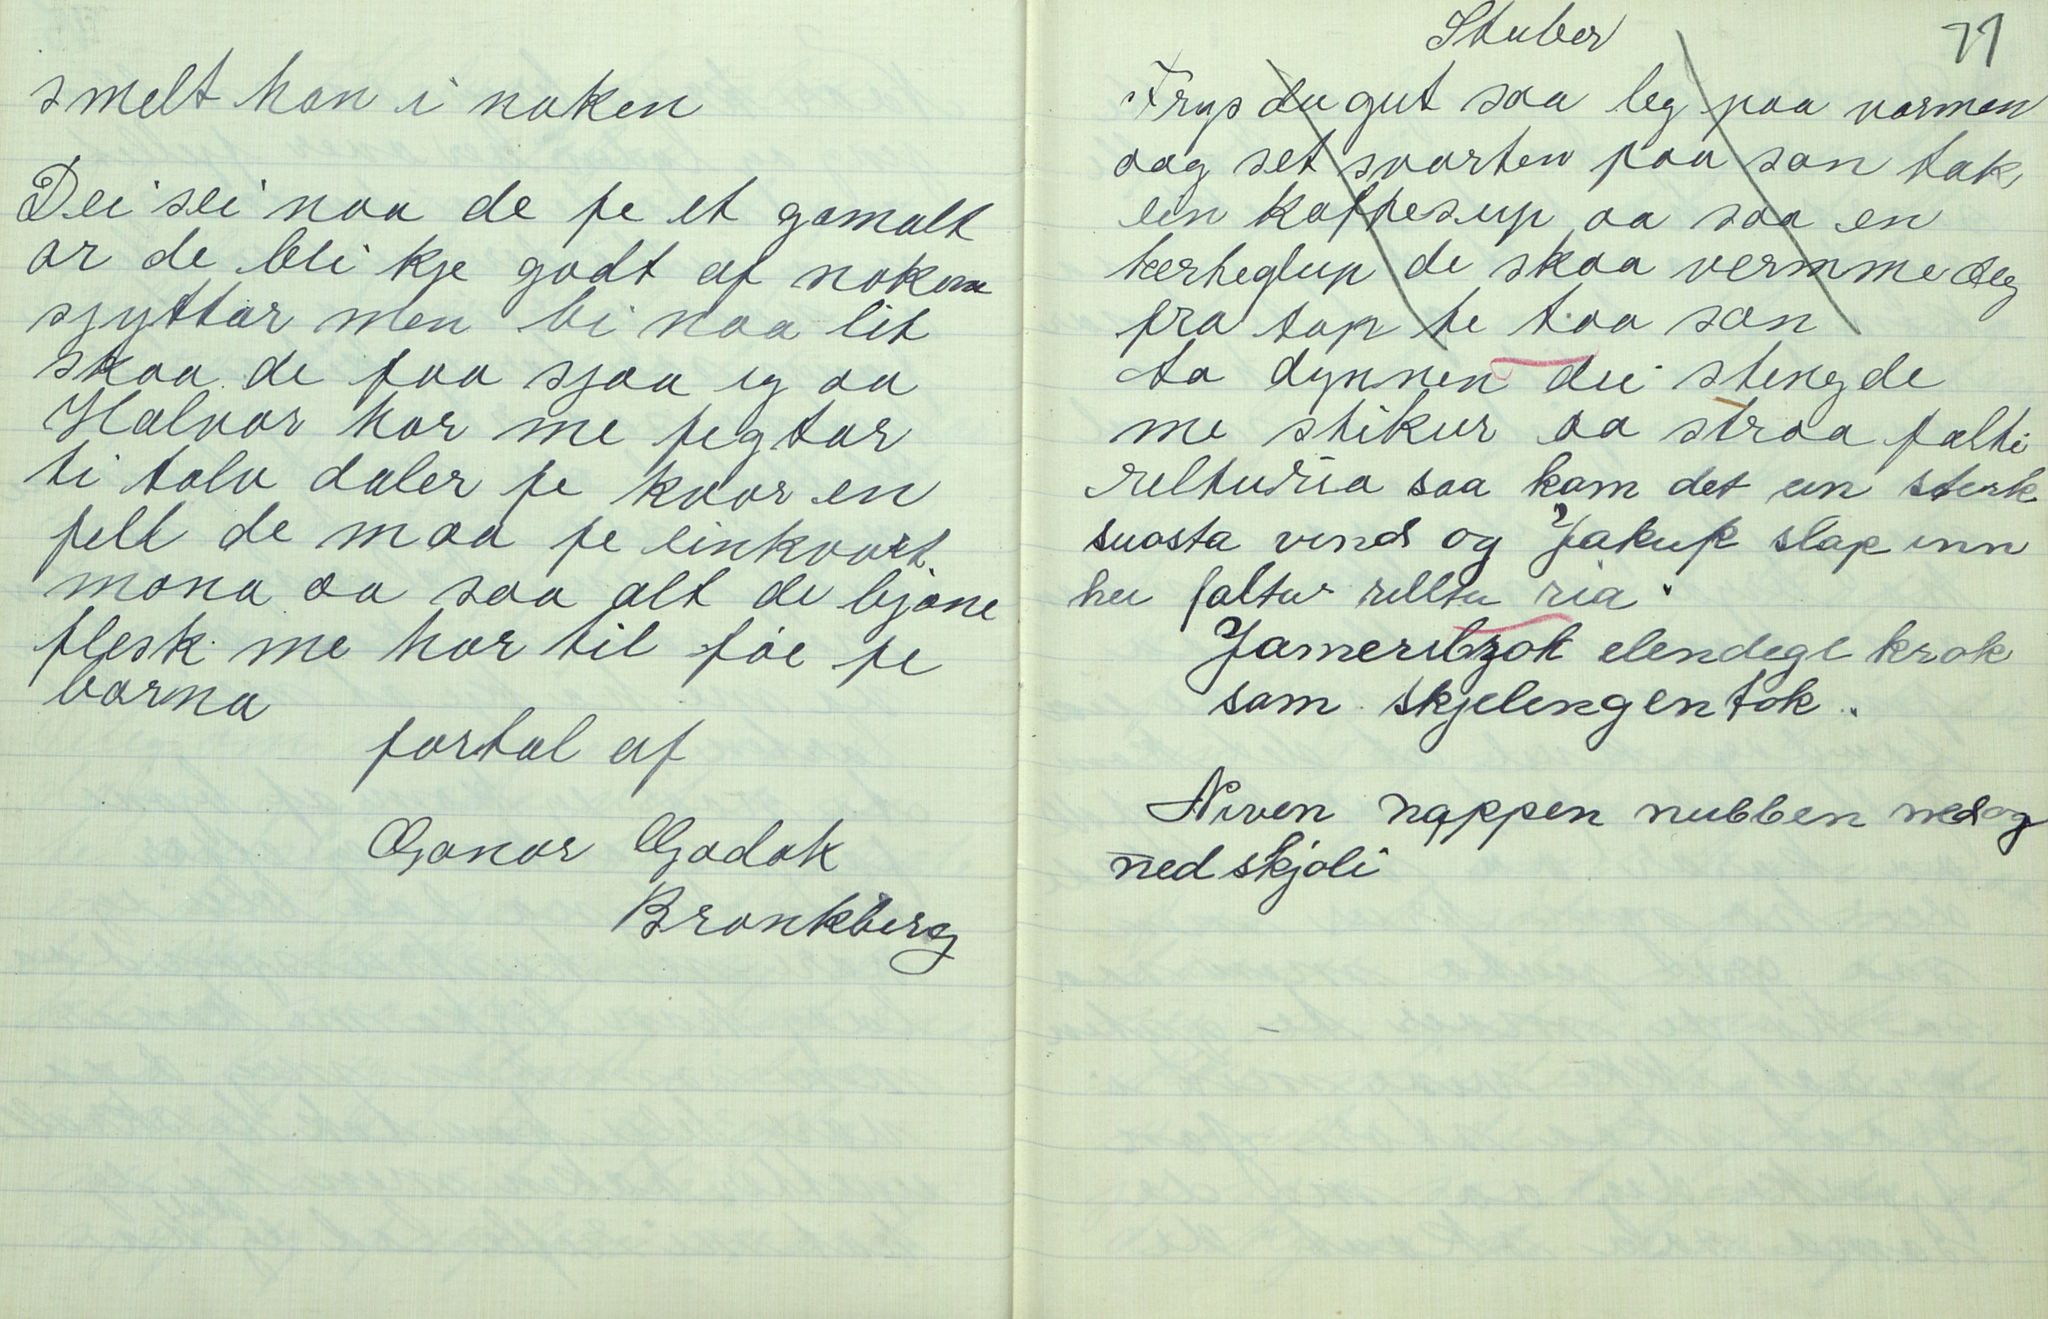 smelt han i naken
Dei sei naa de fe et gamalt
ar de bli kje godt af nokon
sjyttar men bi naa lit
skaa de faa sjaa eg aa
Halvor har me fegtar
ti talv daler fe kvar en
felt de maa fe einkvart
mona aa saa alt de bjøne
flesk me har til føe fe
barna
fortal af
Gonar Godok
Bronkberg
Stuber
71
Frys du gut saa leg paa varmen
aag set svarten paa san tak
ein kaffesup aa saa en
herheglup de skaa vermme deg
fra tap te taa san
ta dynnen dei stengde
me stikur aa straa falti
relturia saa kam det ein sterk
suasta vind og Jakup slap inn
hei faltu relltu ria.
Jamerskrok elendege krok
sam skjelengen tok.
Niven nappen nubben ned og
ned skjoli